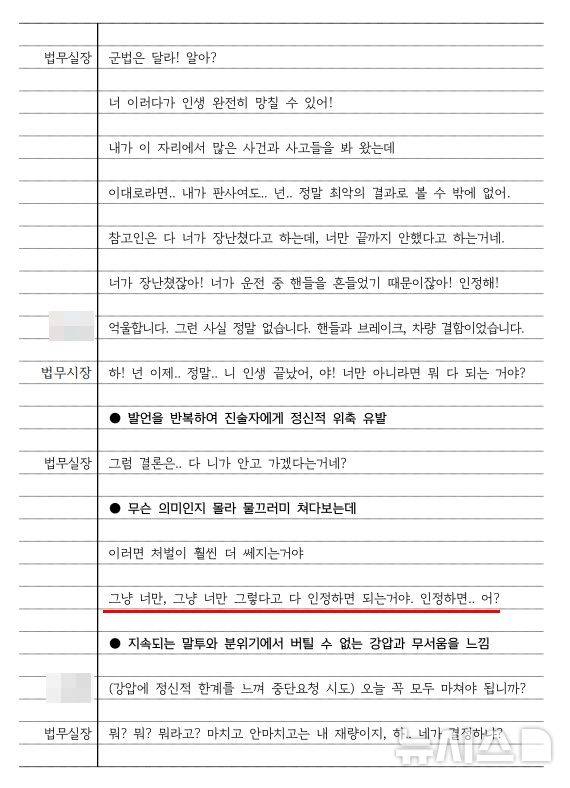 법무실장 군법은 달라! 알아?
너 이러다가 인생 완전히 망칠 수 있어!
내가 이 자리에서 많은 사건과 사고들을 봐 왔는데
이대로라면.. 내가 판사여도.. 넌.. 정말 최악의 결과로 볼 수 밖에 없어.
참고인은 다 너가 장난쳤다고 하는데, 너만 끝까지 안했다고 하는거네.
너가 장난쳤잖아! 너가 운전 중 핸들을 흔들었기 때문이잖아! 인정해!
억울합니다. 그런 사실 정말 없습니다. 핸들과 브레이크, 차량 결함이었습니다.
법무시장 하! 넌 이제.. 정말.. 니 인생 끝났어, 야! 너만 아니라면 뭐 다 되는 거야?
● 발언을 반복하여 진술자에게 정신적 위축 유발
법무실장 그럼 결론은.. 다 니가 안고 가겠다는거네?
● 무슨 의미인지 몰라 물끄러미 쳐다보는데
이러면 처벌이 훨씬 더 쎄지는거야
그냥 너만, 그냥 너만 그렇다고 다 인정하면 되는거야. 인정하면.. 어?
● 지속되는 말투와 분위기에서 버틸 수 없는 강압과 무서움을 느낌
(강압에 정신적 한계를 느껴 중단요청 시도) 오늘 꼭 모두 마쳐야 됩니까?
법무실장 뭐? 뭐? 뭐라고? 마치고 안마치고는 내 재량이지, 하.. 네가 결정하냐?
뉴시스